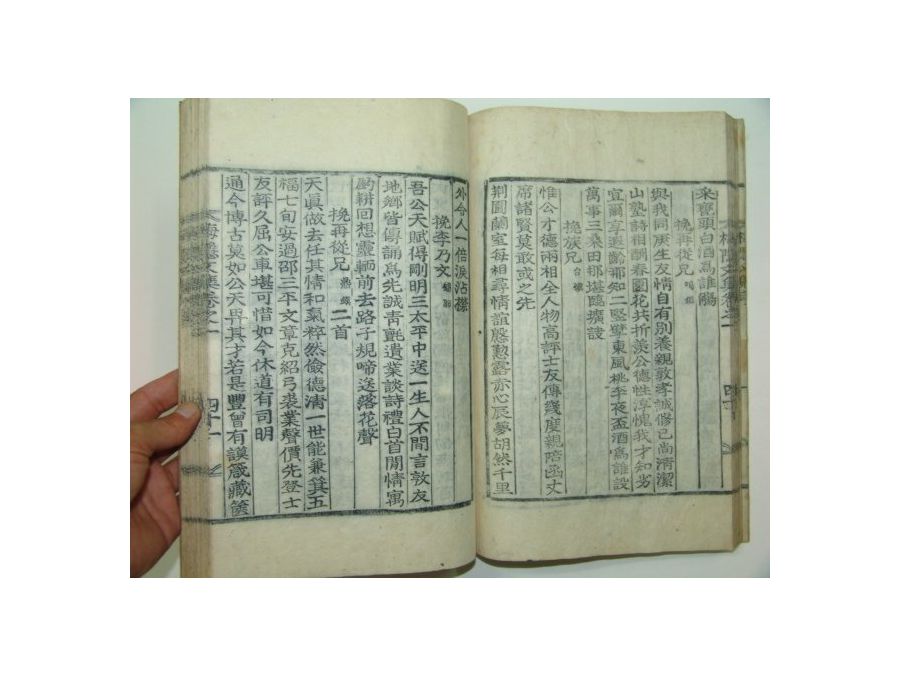 采薺頭白酒爲誰觴
挽再從兄
與我同庚生友情自有別養親敦孝誠修己尚清潔
山塾詩相酬春園花共折羨公德性淳愧我才知劣
宜爾享遐齡那知二竪孼東風桃李夜盃酒爲誰設
萬事三柴田那堪臨壙訣
挽族兄
惟公才德兩相全人物高評士友傳幾度親陪函丈
席諸賢莫敢或之先
荊園蘭室每相尋情誼慇懃露赤心辰夢胡然千里
外令人一倍淚沾襟
挽李乃文
吾公天賦得剛明三太平中送一生人不閒言敦友
地鄉皆傳誦爲先誠靑氈遺業談詩禮白首閒情寓
耕回想靈輀前去路子規啼送落花聲
挽再從兄 二首
天眞做去任其情和氣粹然儉德淸一世能兼箕五
福七旬安過邵三平文章克紹弓裘業聲價先登士
友評久屈公車堪可惜如今休道有司明
通今博古莫如公天畀其才若是豐曾有謨箴藏篋
文集卷之一
四十一